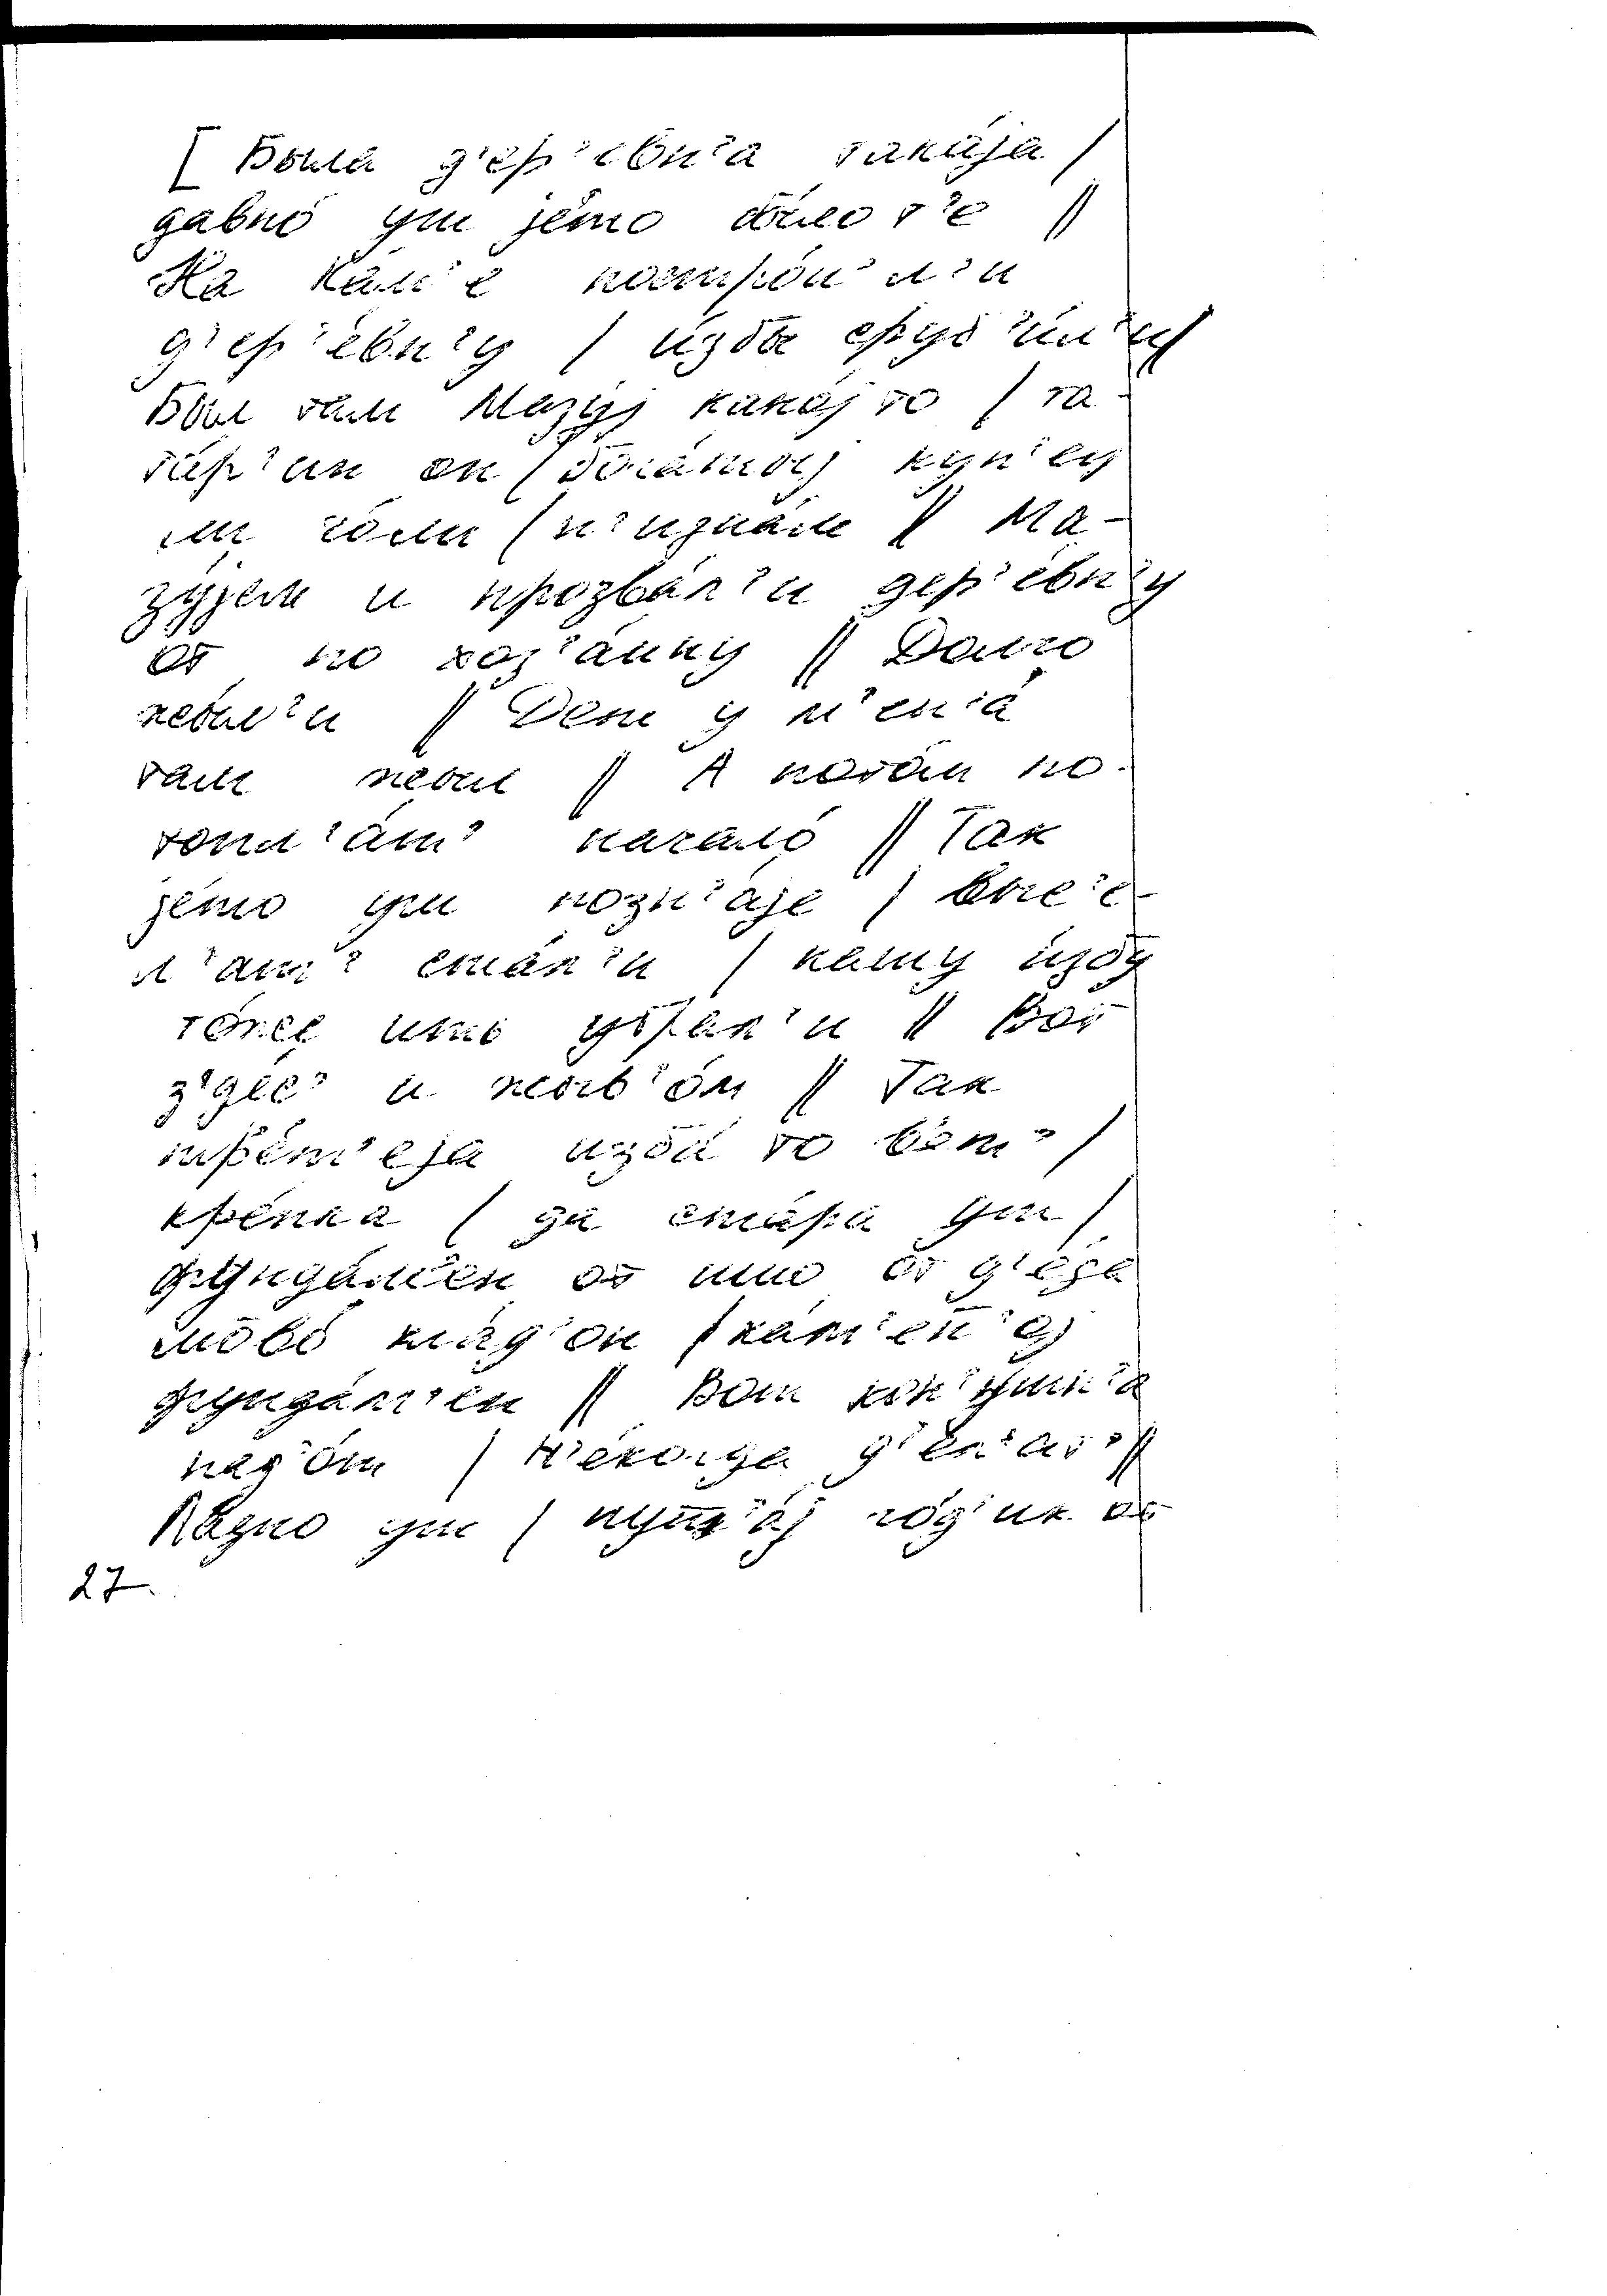 [ Была д'ер'евн'а така́jа /
давно́ уш jе́то бы́ло т'е //
На Ка́м'е постро́и л'и
д'ер'е́вн'у / и́збы сруб'и́л'и //
Был там Мазу́j како́j то / та-
та́р'ин он / бога́тыj куп'ец
ли чо́ли / н'изна́м // Ма-
зу́jем и прозва́л'и дер'е́вн'у
от по хоз'а́ину // Долго
жыл'и // Дом у м'ен'а́
там жыл // А пото́м по-
топл'а́т' начало́ // Так
jе́то уш позн'а́jе / высе-
л'ат' ста́л'и / нашу и́збу
то́жа убрал'и // Вот
з'д'ес' и жыв'о́м // Так
тре́т'еjа изба́ то в'ет' /
кре́пка / да ста́ра уш /
фунда́м'ен от што от д'е́да
мово́ кла́д'он / ка́м'ен'оj
фунда́м'ен // Вот кон'у́шн'а
пад'о́т / н'е́когда д'е́лат' //
Ла́дно уш / пуша́j го́д'ик от
27.